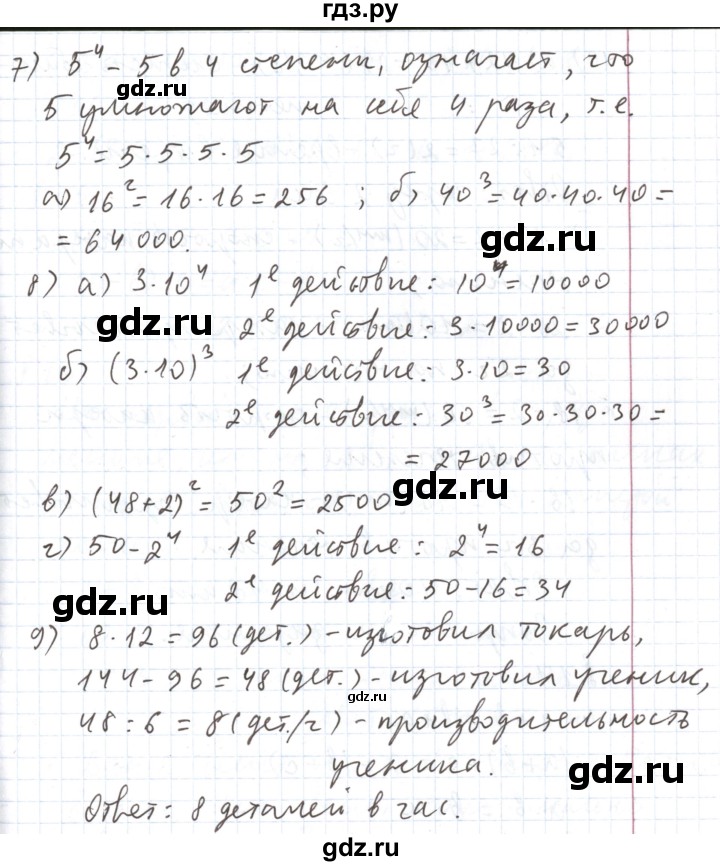 гдз.ру
7) 5⁴ - 5 в 4 степени, означает, что
5 умножают на себя 4 раза, т.е.
5⁴ = 5 · 5 · 5 · 5
а) 16² = 16 · 16 = 256 ; б) 40³ = 40 · 40 · 40 =
= 64 000.
8) а) 3 · 10⁴ 1е действие: 10⁴ = 10000
2е действие: 3 · 10000 = 30000
б) (3 · 10)³ 1е действие: 3 · 10 = 30
2е действие: 30³ = 30 · 30 · 30 =
= 27000
в) (48+2)² = 50² = 2500
г) 50 - 2⁴ 1е действие: 2⁴ = 16
2е действие: 50 - 16 = 34
9) 8 · 12 = 96 (дет.) - изготовил токарь,
144 - 96 = 48 (дет.) - изготовил ученик,
48 : 6 = 8 (дет/ч) - производительность
ученика.
Ответ: 8 деталей в час.
gdz.ru
gdz.ru
gdz.ru
gdz.ru
gdz.ru
gdz.ru
gdz.ru
gdz.ru